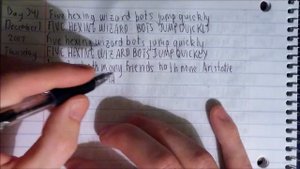 Day 341 Five hexing wizard bots jump quickly
December FIVE HEXING WIZARD BOTS JUMP QUICKLY
2017 Five hexing wizard bots jump quickly
Thursday FIVE HEXING WIZARD BOTS JUMP QUICKLY
many friends hath none Aristotle